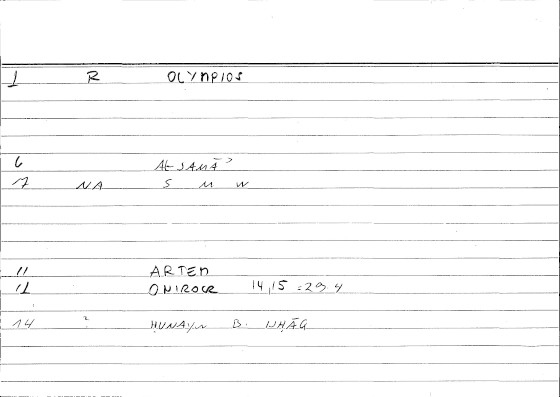 1 R OLYMPIOS
6 AL-SAMĀʾ
17 NA S M W
11 ARTEM
12 ONIROCR 14,15 = 29 4
14 ? ḤUNAYN B. ISḤĀQ